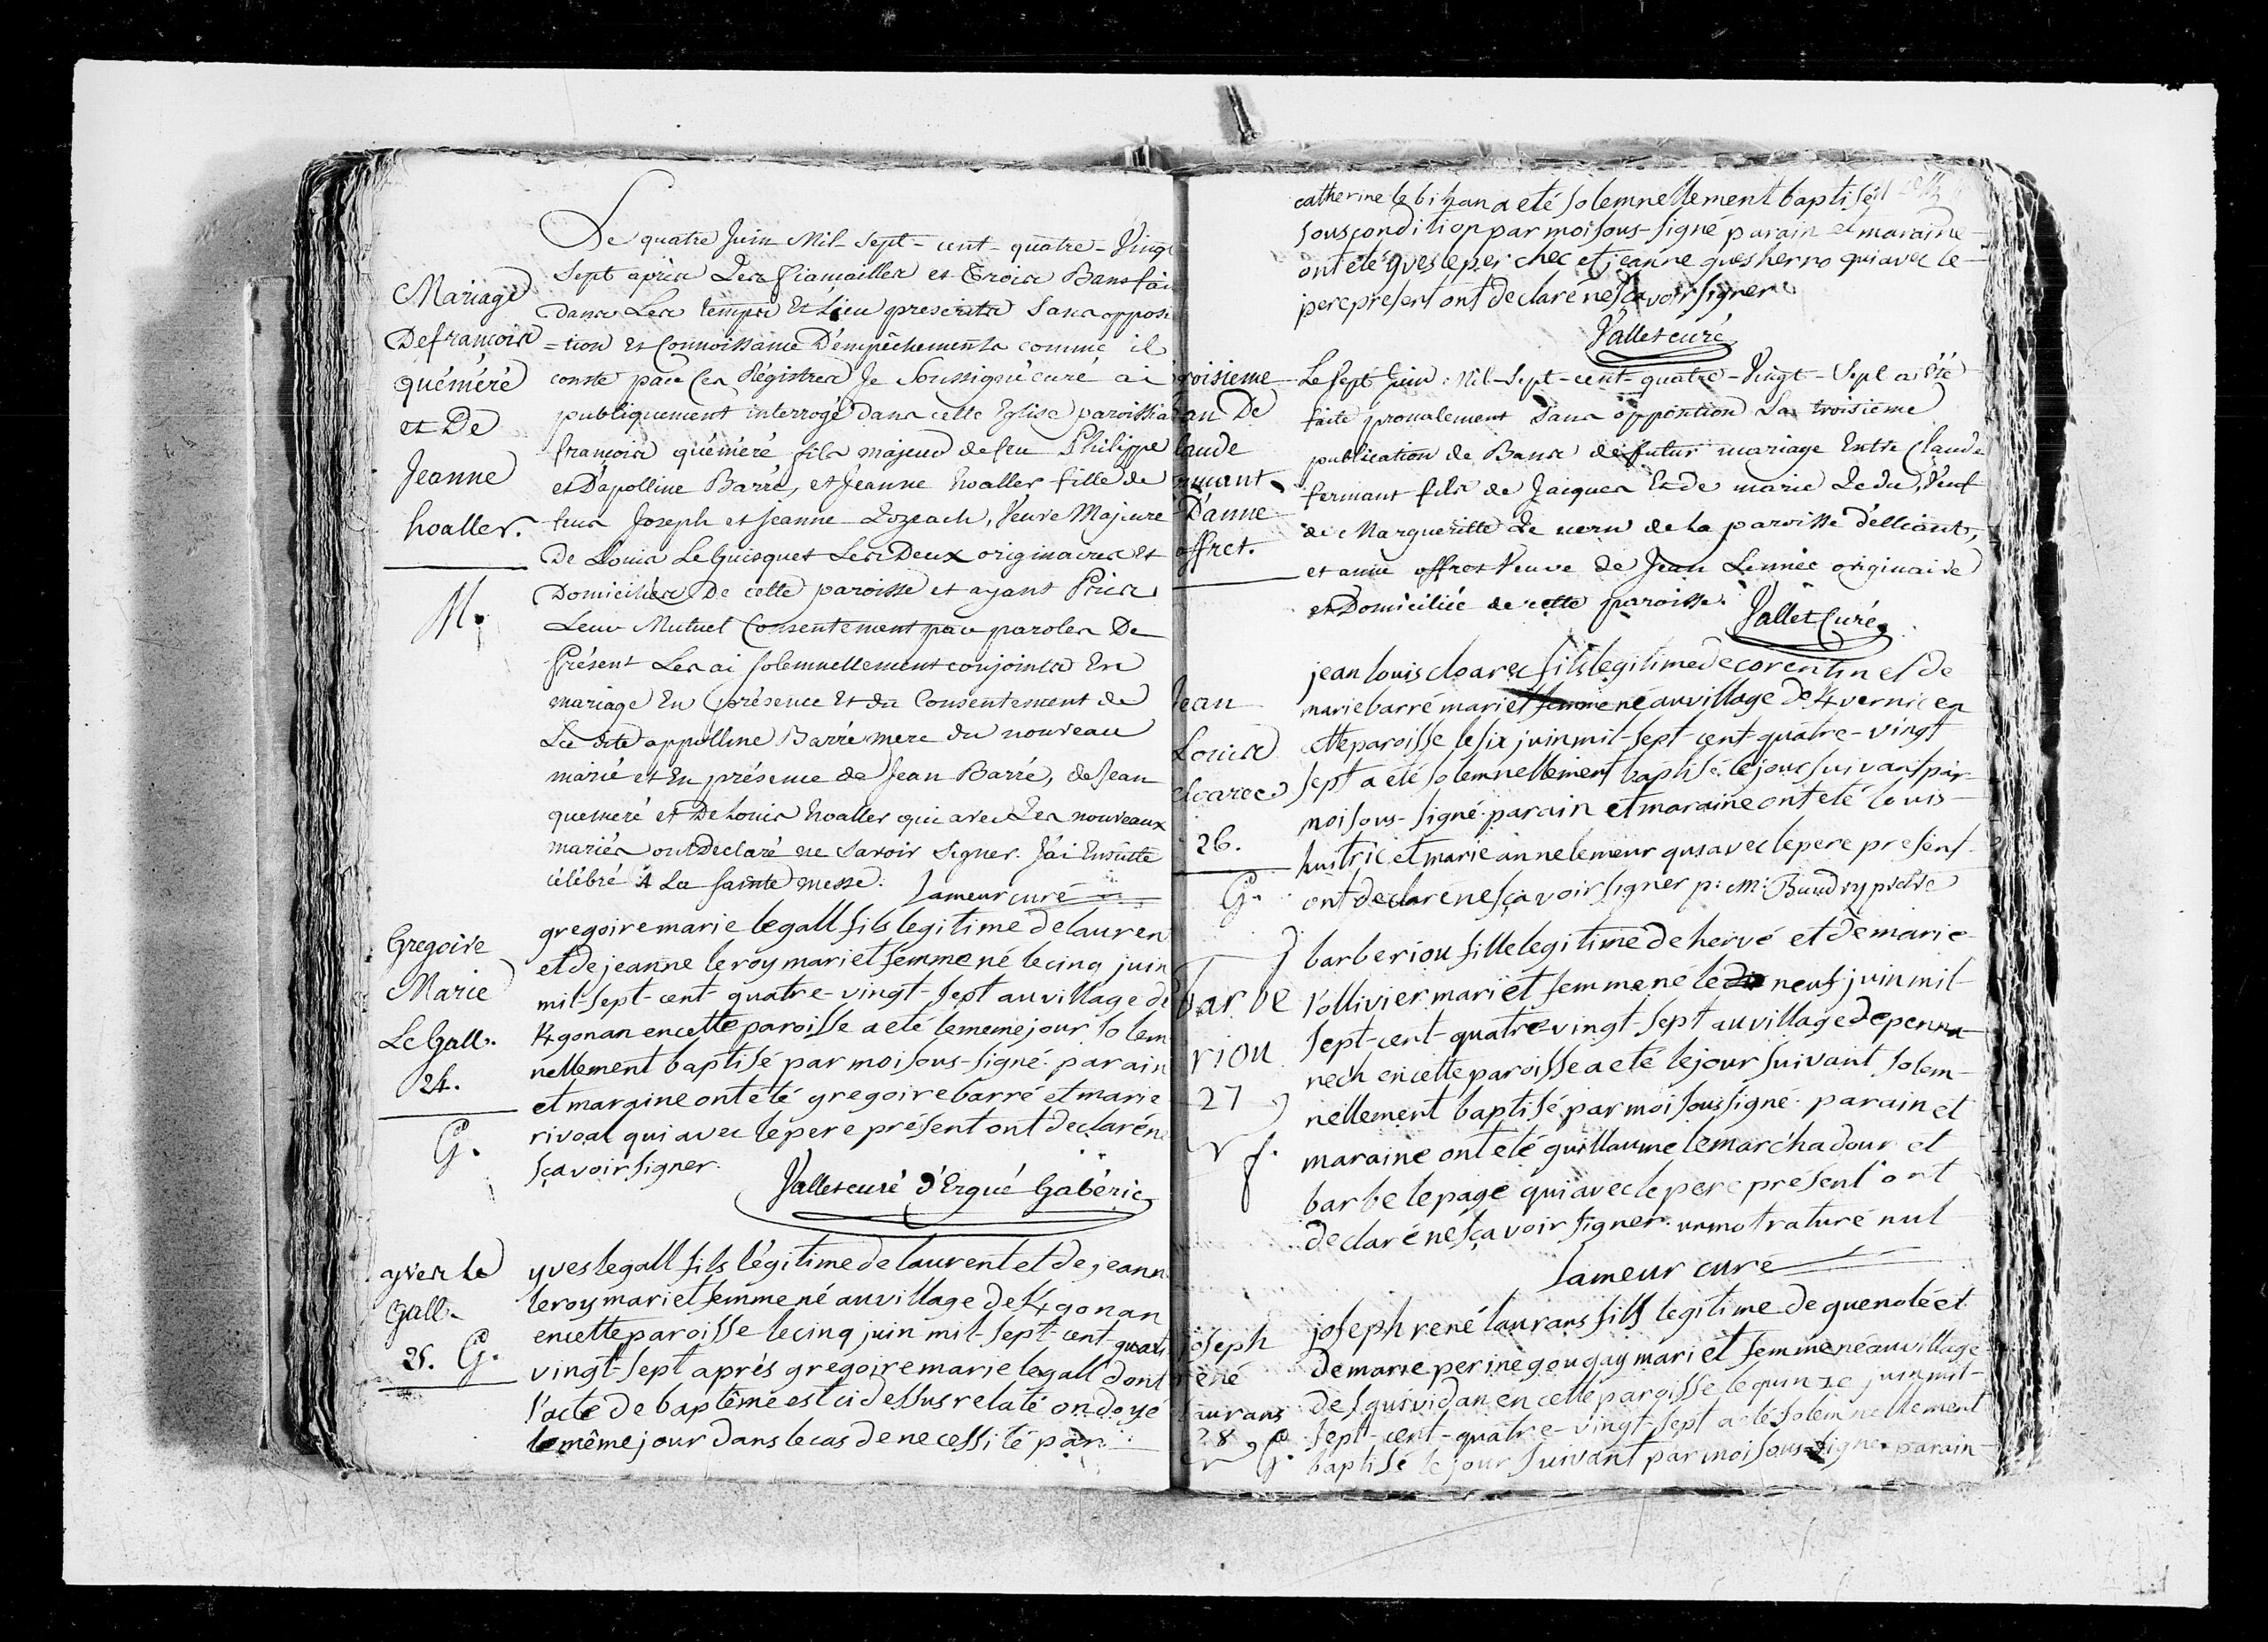 Mariage
De françois
quéméré
et De
Jeanne
hoaller.
M.
Le quatre Juin Mil-Sept-cent-quatre-Vingt
Sept après Les fiancailles et Trois Bans fai
dans Les temps Et Lieu prescrits Sans opposi
=tion Et Connoissance D'empêchements comme il
conste par les Régistres Je Soussigné curé ai
publiquement interrogé dans cette Eglise paroissia
françois quéméré fils majeur de feu Philippe
et D'apolline Barré, et Jeanne hoaller fille de
feus Joseph et Jeanne Lozeach, Veuve Majeure
De Louis Le Guisquet Les Deux originaires et
Domiciliés De cette paroisse et ayant Pris
Leur Mutuel Consentement par paroles De
Présent Les ai Solemnellement conjoints En
mariage En présence Et du Consentement de
La dite appolline Barré mere du nouveau
marié et En présence de Jean Barré, de Jean
quemeré et De Louis hoaller qui avec Les nouveaux
mariés ont Declaré ne Savoir Signer. J'ai Ensuitte
célébré La Sainte messe.
Lameur curé
Gregoire
Marie
Le Gall.
24.
G.
gregoire marie legall fils legitime de lauren
et de jeanne le roy mari et femme né le cinq juin
mil-sept-cent-quatre-vingt-sept au village de
K/gonan en cette paroisse a eté le meme jour solem
nellement baptisé par moi sous-signé. parain
et maraine ont eté gregoire barré et marie
rivoal qui avec le pere présent ont declaré ne
sçavoir signer.
Vallet curé d'Ergué Gabéric
yves Le
Gall.
25. G.
yves legall fils légitime de laurent et de jeann
leroy mari et femme né au village de K/gonan
en cette paroisse le cinq juin mil-sept-cent-quatr
vingt-sept après gregoire marie legall dont
l'acte de baptême est ci dessus relaté ondoyé
le même jour dans le cas de necessité par
catherine le bihan a eté solemnellement baptisé
sous condition par moi sous-signé parain et maraine
ont eté yves le per chec et jeanne quesherno qui avec le
pere present ont declaré ne sçavoir signer
Vallet curé
roisieme
an De
laude
rmant
D'anne
offret.
Le Sept Juin Mil-Sept-cent-quatre-Vingt-Sept a Eté
faite pronalement Sans opposition La troisieme
publication de Bans de futur mariage Entre Claude
fermant fils de Jacques Et de marie Ledu, Veuf
de Margueritte Le vern de la paroisse d'elliant,
et anne offret Veuve de Jean Lennéc originaire
et Domiciliée de cette paroisse.
Vallet Curé
Jean
Louis
cloarec
26.
G.
jean louis cloarec fils legitime de corentin et de
marie barré mari et femme né au village de K/vernic en
cette paroisse le six juin mil-sept-cent-quatre-vingt
sept a eté solemnellement baptisé le jour suivant par
moi sous-signé. parain et maraine ont eté louis
hustric et marie anne lemeur qui avec le pere present
ont declaré ne sçavoir signer p: m: Baudry prêtre
barbe
riou
27
f.
barbe riou fille legitime de hervé et de marie
l'ollivier mari et femme né le neuf juin mil-
sept-cent-quatre-vingt-sept au village de penn
nech en cette paroisse a eté le jour suivant solem-
nellement baptisé par moi sous signé. parain et
maraine ont eté guillaume lemarc'hadour et
barbe le page qui avec le pere présent ont
declaré ne sçavoir signer. un mot raturé nul
Lameur curé
joseph
rené
laurans
28
G.
joseph rené laurans fils legitime de guenolé et
de marie perine gougay mari et femme né au village
de squividan en cette paroisse le quinze juin mil-
sept-cent-quatre-vingt-sept a eté solemnellement
baptisé le jour suivant par moi sous-signé parain